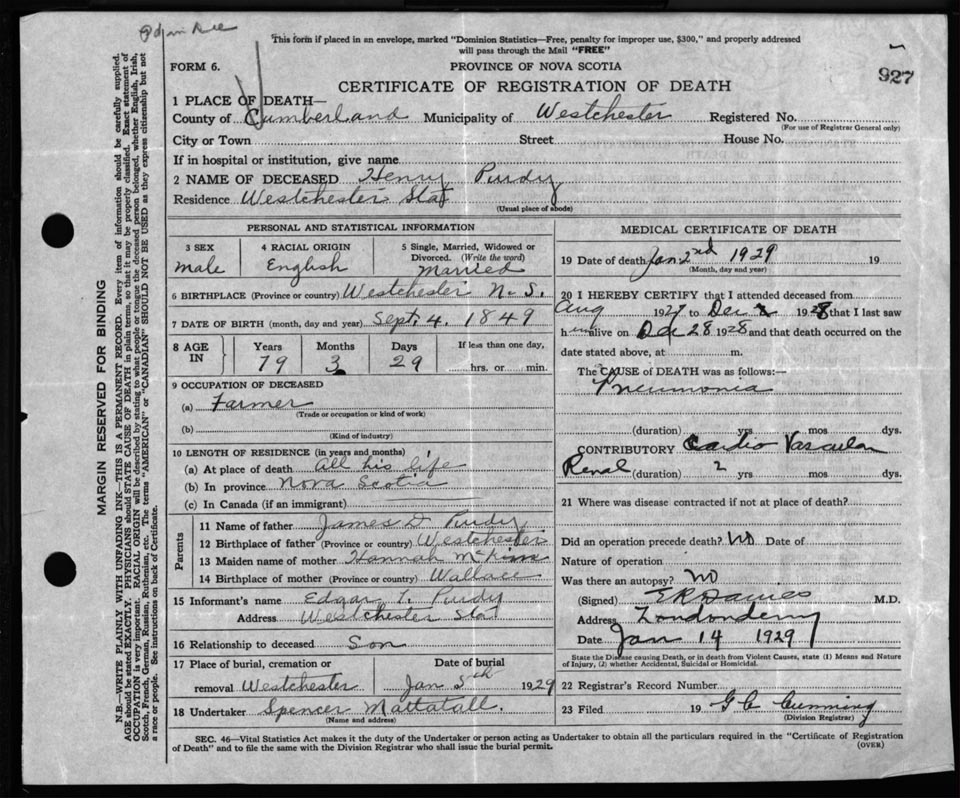 This form if placed in an envelope, marked "Dominion Statistics—Free, penalty for improper use, $300," and properly addressed
will pass through the Mail "FREE"
FORM 6.
PROVINCE OF NOVA SCOTIA
927
CERTIFICATE OF REGISTRATION OF DEATH
1 PLACE OF DEATH—
County of Cumberland Municipality of Westchester Registered No.
(For use of Registrar General only)
City or Town Street House No.
If in hospital or institution, give name
2 NAME OF DECEASED Henry Purdy
Residence Westchester Sta
(Usual place of abode)
PERSONAL AND STATISTICAL INFORMATION
3 SEX 4 RACIAL ORIGIN 5 Single, Married, Widowed or
Divorced. (Write the word)
male English Married
6 BIRTHPLACE (Province or country) Westchester N.S.
7 DATE OF BIRTH (month, day and year) Sept. 4. 1849
8 AGE IN Years Months Days If less than one day,
79 3 29 hrs. or min.
9 OCCUPATION OF DECEASED
(a) Farmer
(Trade or occupation or kind of work)
(b)
(Kind of industry)
10 LENGTH OF RESIDENCE (in years and months)
(a) At place of death All his life
(b) In province Nova Scotia
(c) In Canada (if an immigrant)
Parents
11 Name of father James D Purdy
12 Birthplace of father (Province or country) Westchester
13 Maiden name of mother Hannah McKim
14 Birthplace of mother (Province or country) Wallace
15 Informant's name Edgar T. Purdy
Address Westchester Sta
16 Relationship to deceased Son
17 Place of burial, cremation or Date of burial
removal Westchester Jan 5th 1929
18 Undertaker Spencer Mattatall.
(Name and address)
MEDICAL CERTIFICATE OF DEATH
19 Date of death Jan 2nd 1929 19
(Month, day and year)
20 I HEREBY CERTIFY that I attended deceased from
Aug 1927 to Dec 1928 that I last saw
him alive on Dec 28 1928 and that death occurred on the
date stated above, at m.
The CAUSE OF DEATH was as follows:—
Pneumonia
(duration) yrs mos dys.
CONTRIBUTORY Cardio Vascular
Renal (duration) 2 yrs mos dys.
21 Where was disease contracted if not at place of death?
Did an operation precede death? No Date of
Nature of operation
Was there an autopsy? No
(Signed) E R Davies M.D.
Address Londonderry
Date Jan 14 1929
State the Disease causing Death, or in death from Violent Causes, state (1) Means and Nature
of Injury, (2) whether Accidental, Suicidal or Homicidal.
22 Registrar's Record Number
23 Filed 19 G C Cumming
(Division Registrar)
SEC. 46—Vital Statistics Act makes it the duty of the Undertaker or person acting as Undertaker to obtain all the particulars required in the "Certificate of Registration
of Death" and to file the same with the Division Registrar who shall issue the burial permit.
(OVER)
MARGIN RESERVED FOR BINDING
N.B.—WRITE PLAINLY WITH UNFADING INK—THIS IS A PERMANENT RECORD. Every item of information should be carefully supplied.
AGE should be stated EXACTLY. PHYSICIANS should STATE CAUSE OF DEATH in plain terms, so that it may be properly classified. Exact statement of
OCCUPATION is very important. RACIAL ORIGIN will be described by stating to what people or tongue the deceased person belonged, whether English, Irish,
Scotch, French, German, Russian, Ruthenian, etc. The terms "AMERICAN" or "CANADIAN" SHOULD NOT BE USED as they express citizenship but not
a race or people. See instructions on back of Certificate.